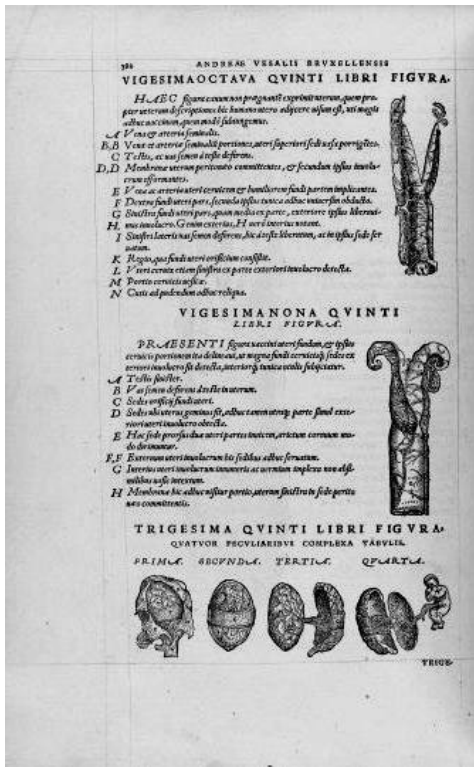 ANDREAE VESALII BRVXELLENSIS
VIGESIMAOCTAVA QVINTI LIBRI FIGVRA.
HAEC figura canum non prægnantis exprimit uterum, quem pro-
pter uterum descriptiones hic humano utero adijcere uisum est, uti magis
adhuc uaccinum, quem modò subiungemus.
A Vena & arteria seminalis.
B,B Venæ et arteriæ seminalis portiones, uteri superiori sedi uasa porrigētes.
C Testis, ac uas semen à teste deferens.
D,D Membranæ uterum peritonæo committentes, & secundum ipsius inuolu-
crum efformantes.
E Vena ac arteria uteri ceruicem & humiliorem fundi partem implicantes.
F Dextra fundi uteri pars, secunda ipsius tunica adhuc uniuersim obducta.
G Sinistra fundi uteri pars, quam media ex parte, exteriore ipsius liberaui-
H, mus inuolucro. G enim exterius, H uerò interius notant.
I Sinistri lateris uas semen deferens, hic à teste liberatum, ac in ipsius sede ser
uatum.
K Regio, qua fundi uteri orificium consistit.
L Vteri ceruix etiam sinistra ex parte exteriori inuolucro detecta.
M Portio ceruicis uesicæ.
N Cutis ad pudendum adhuc reliqua.
VIGESIMANONA QVINTI
LIBRI FIGVRA.
PRAESENTI figura uaccini uteri fundum, & ipsius
ceruicis portionem ita delineaui, ut magna fundi ceruicisq́; sedes ex
teriori inuolucro sit detecta, interiorq́; tunica oculis subijciatur.
A Testis sinister.
B Vas semen deferens à teste in uterum.
C Sedes orificij fundi uteri.
D Sedes ubi uterus geminus sit, adhuc tamen utraq́; parte simul exte-
riori uteri inuolucro obtecta.
E Hac sede prorsus duæ uteri partes inuicem, arietum cornuum mo-
do dirimuntur.
F,F Exterum uteri inuolucrum his sedibus adhuc seruatum.
G Interius uteri inuolucrum innumeris ac uermium implexu non absi-
milibus uasis intextum.
H Membranæ hic adhuc uisitur portio, uterum sinistra in sede perito
næo committentis.
TRIGESIMA QVINTI LIBRI FIGVRA,
QVATVOR PECVLIARIBVS COMPLEXA TABVLIS.
PRIMA. SECVNDA. TERTIA. QVARTA.
TRIGE-